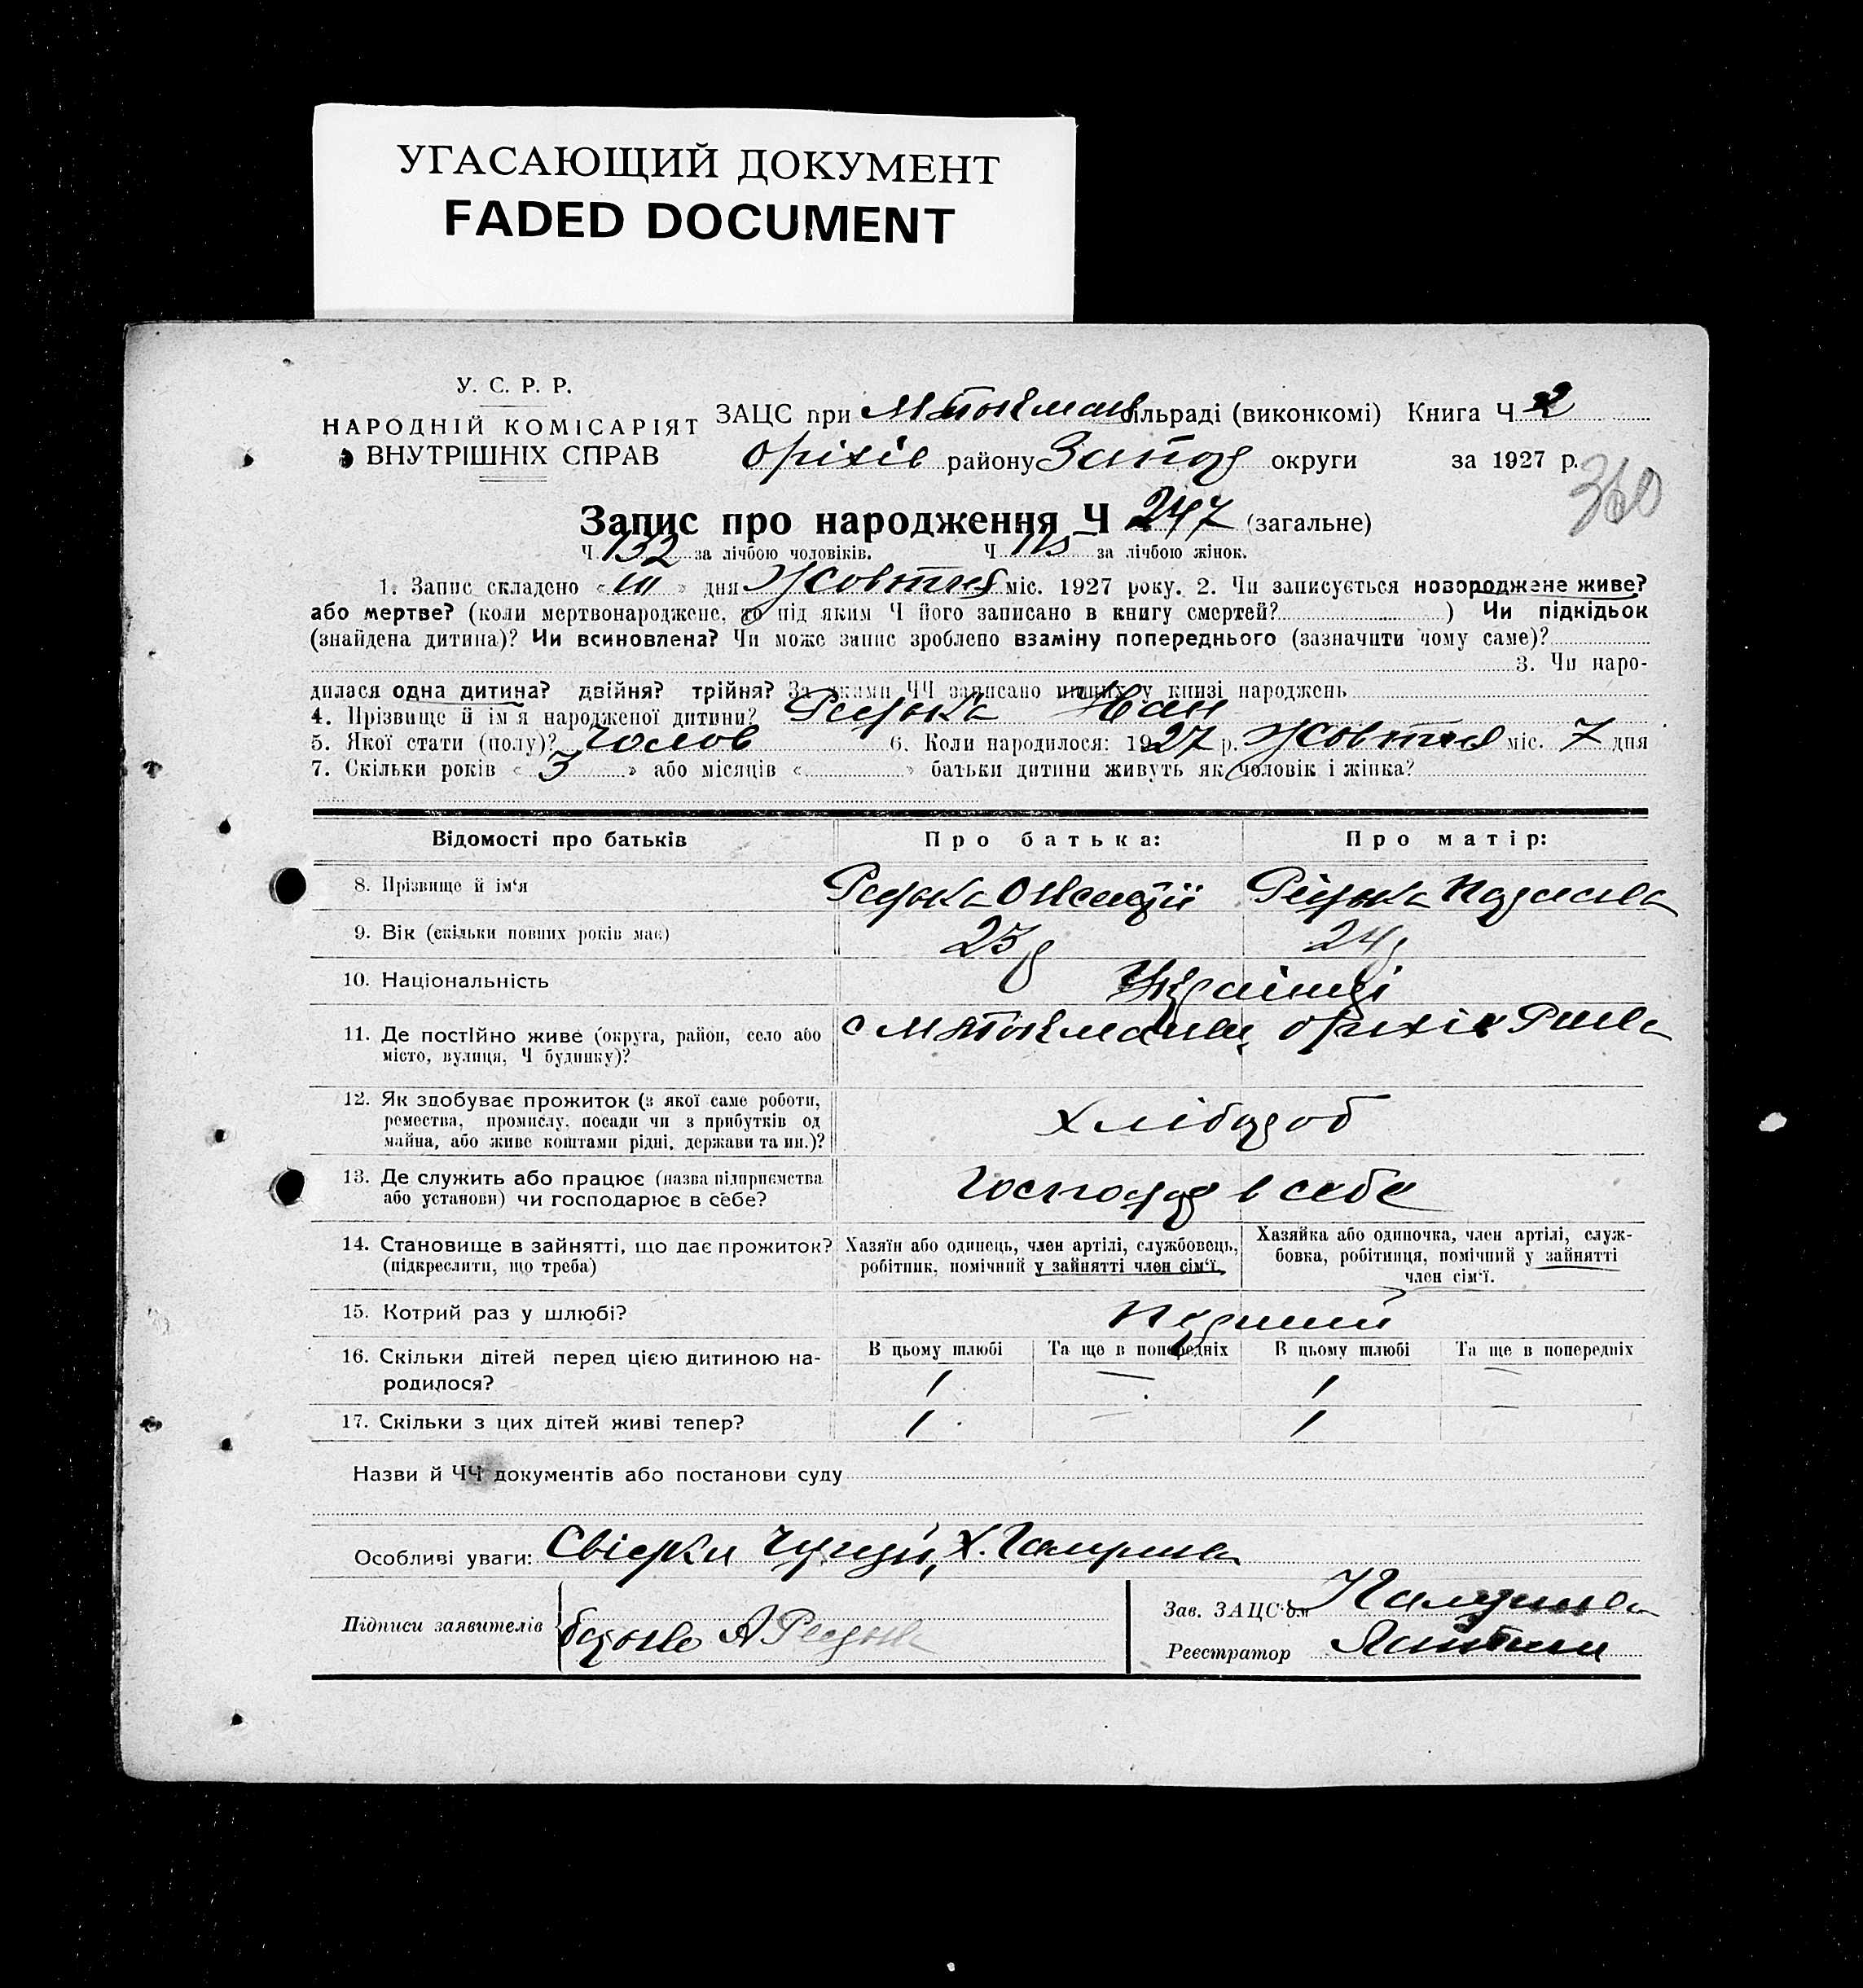 УГАСАЮЩИЙ ДОКУМЕНТ
FADED DOCUMENT
У. С. Р. Р.
НАРОДНІЙ КОМІСАРІЯТ
ВНУТРІШНІХ СПРАВ
ЗАЦС при сільраді (виконкомі) Книга Ч 2
Оріхів району Запор округи за 1927 р.
360
Запис про народження Ч 247 (загальне)
Ч 132 за лічбою чоловіків. Ч 115 за лічбою жінок.
1. Запис складено « » дня Жовтня міс. 1927 року. 2. Чи записується новороджене живе?
або мертве? (коли мертвонароджене, то під яким Ч його записано в книгу смертей? ) Чи підкідьок
(знайдена дитина)? Чи всиновлена? Чи може запис зроблено взаміну попереднього (зазначити чому саме)?
3. Чи наро-
дилася одна дитина? двійня? трійня? За якими ЧЧ записано инших у книзі народжень
4. Прізвище й ім'я народженої дитини? Редька Иван
5. Якої стати (полу)? Чолов 6. Коли народилося: 1927 р. Жовтня міс. 7 дня
7. Скільки років « 3 » або місяців « » батьки дитини живуть як чоловік і жінка?
Відомості про батьків Про батька: Про матір:
8. Прізвище й ім'я Редька Редька
9. Вік (скільки повних років має) 23р 24р
10. Національність Українці
11. Де постійно живе (округа, район, село або
місто, вулиця, Ч будинку)?
с Оріхів
12. Як здобуває прожиток (з якої саме роботи,
ремества, промислу, посади чи з прибутків од
майна, або живе коштами рідні, держави та ин.)?
Хлібороб
13. Де служить або працює (назва підприємства
або установи) чи господарює в себе?
Господар в себе
14. Становище в зайнятті, що дає прожиток?
(підкреслити, що треба)
Хазяїн або одинець, член артілі, службовець,
робітник, помічний у зайнятті член сім'ї.
Хазяйка або одиночка, член артілі, служ-
бовка, робітниця, помічний у зайнятті
член сім'ї.
15. Котрий раз у шлюбі? Перший
16. Скільки дітей перед цією дитиною на-
родилося?
В цьому шлюбі Та ще в попередніх В цьому шлюбі Та ще в попередніх
1 — 1 —
17. Скільки з цих дітей живі тепер? 1 — 1 —
Назви й ЧЧ документів або постанови суду
Особливі уваги: Свідки
Підписи заявителів А Редька
Зав. ЗАЦС'ом
Реєстратор